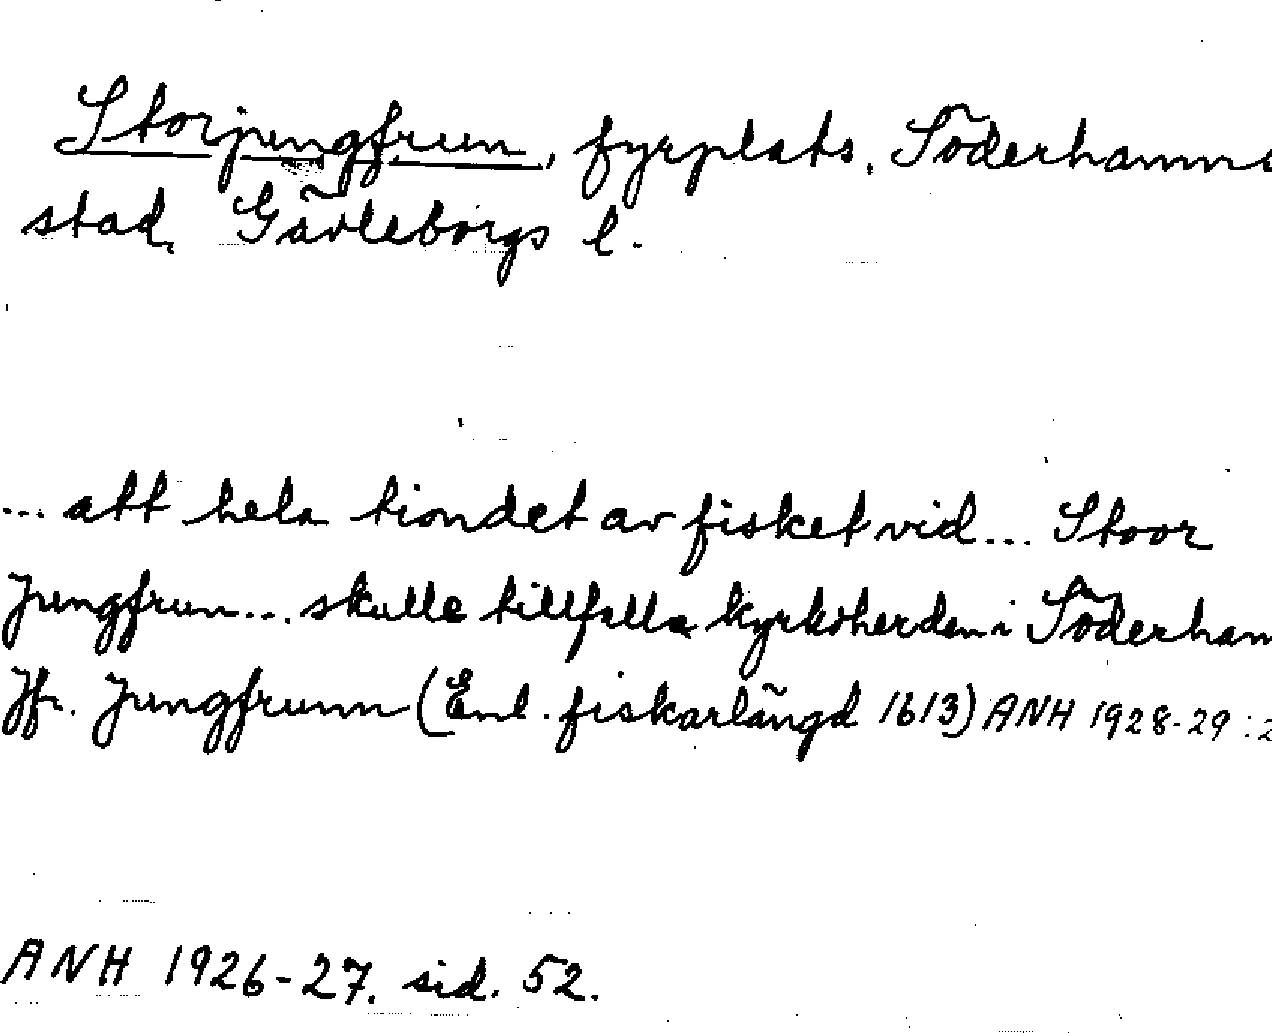 Storjungfrun, fyrplats, Söderhamns
stad, Gävleborgs l.
... att hela tiondet av fisket vid... Stoor
Jungfrun... skulle tillfalla kyrkoherden i Söderham
Jfr. Jungfrunn (Enl. fiskarlängd 1613) ANH 1928-29:2
ANH 1926-27. sid. 52.